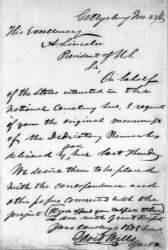 Gettysburg Nov 23/63
His Excellency
A Lincoln
President of U.S.
Sir
On behalf
of the States interested in the
National Cemetery here, I request
of you the original manuscript
of the Dedicatory Remarks
delivered by you here last Thursday
We desire them to be placed
with the correspondence and
other papers connected with the
project
I am with great
Your
David Wills